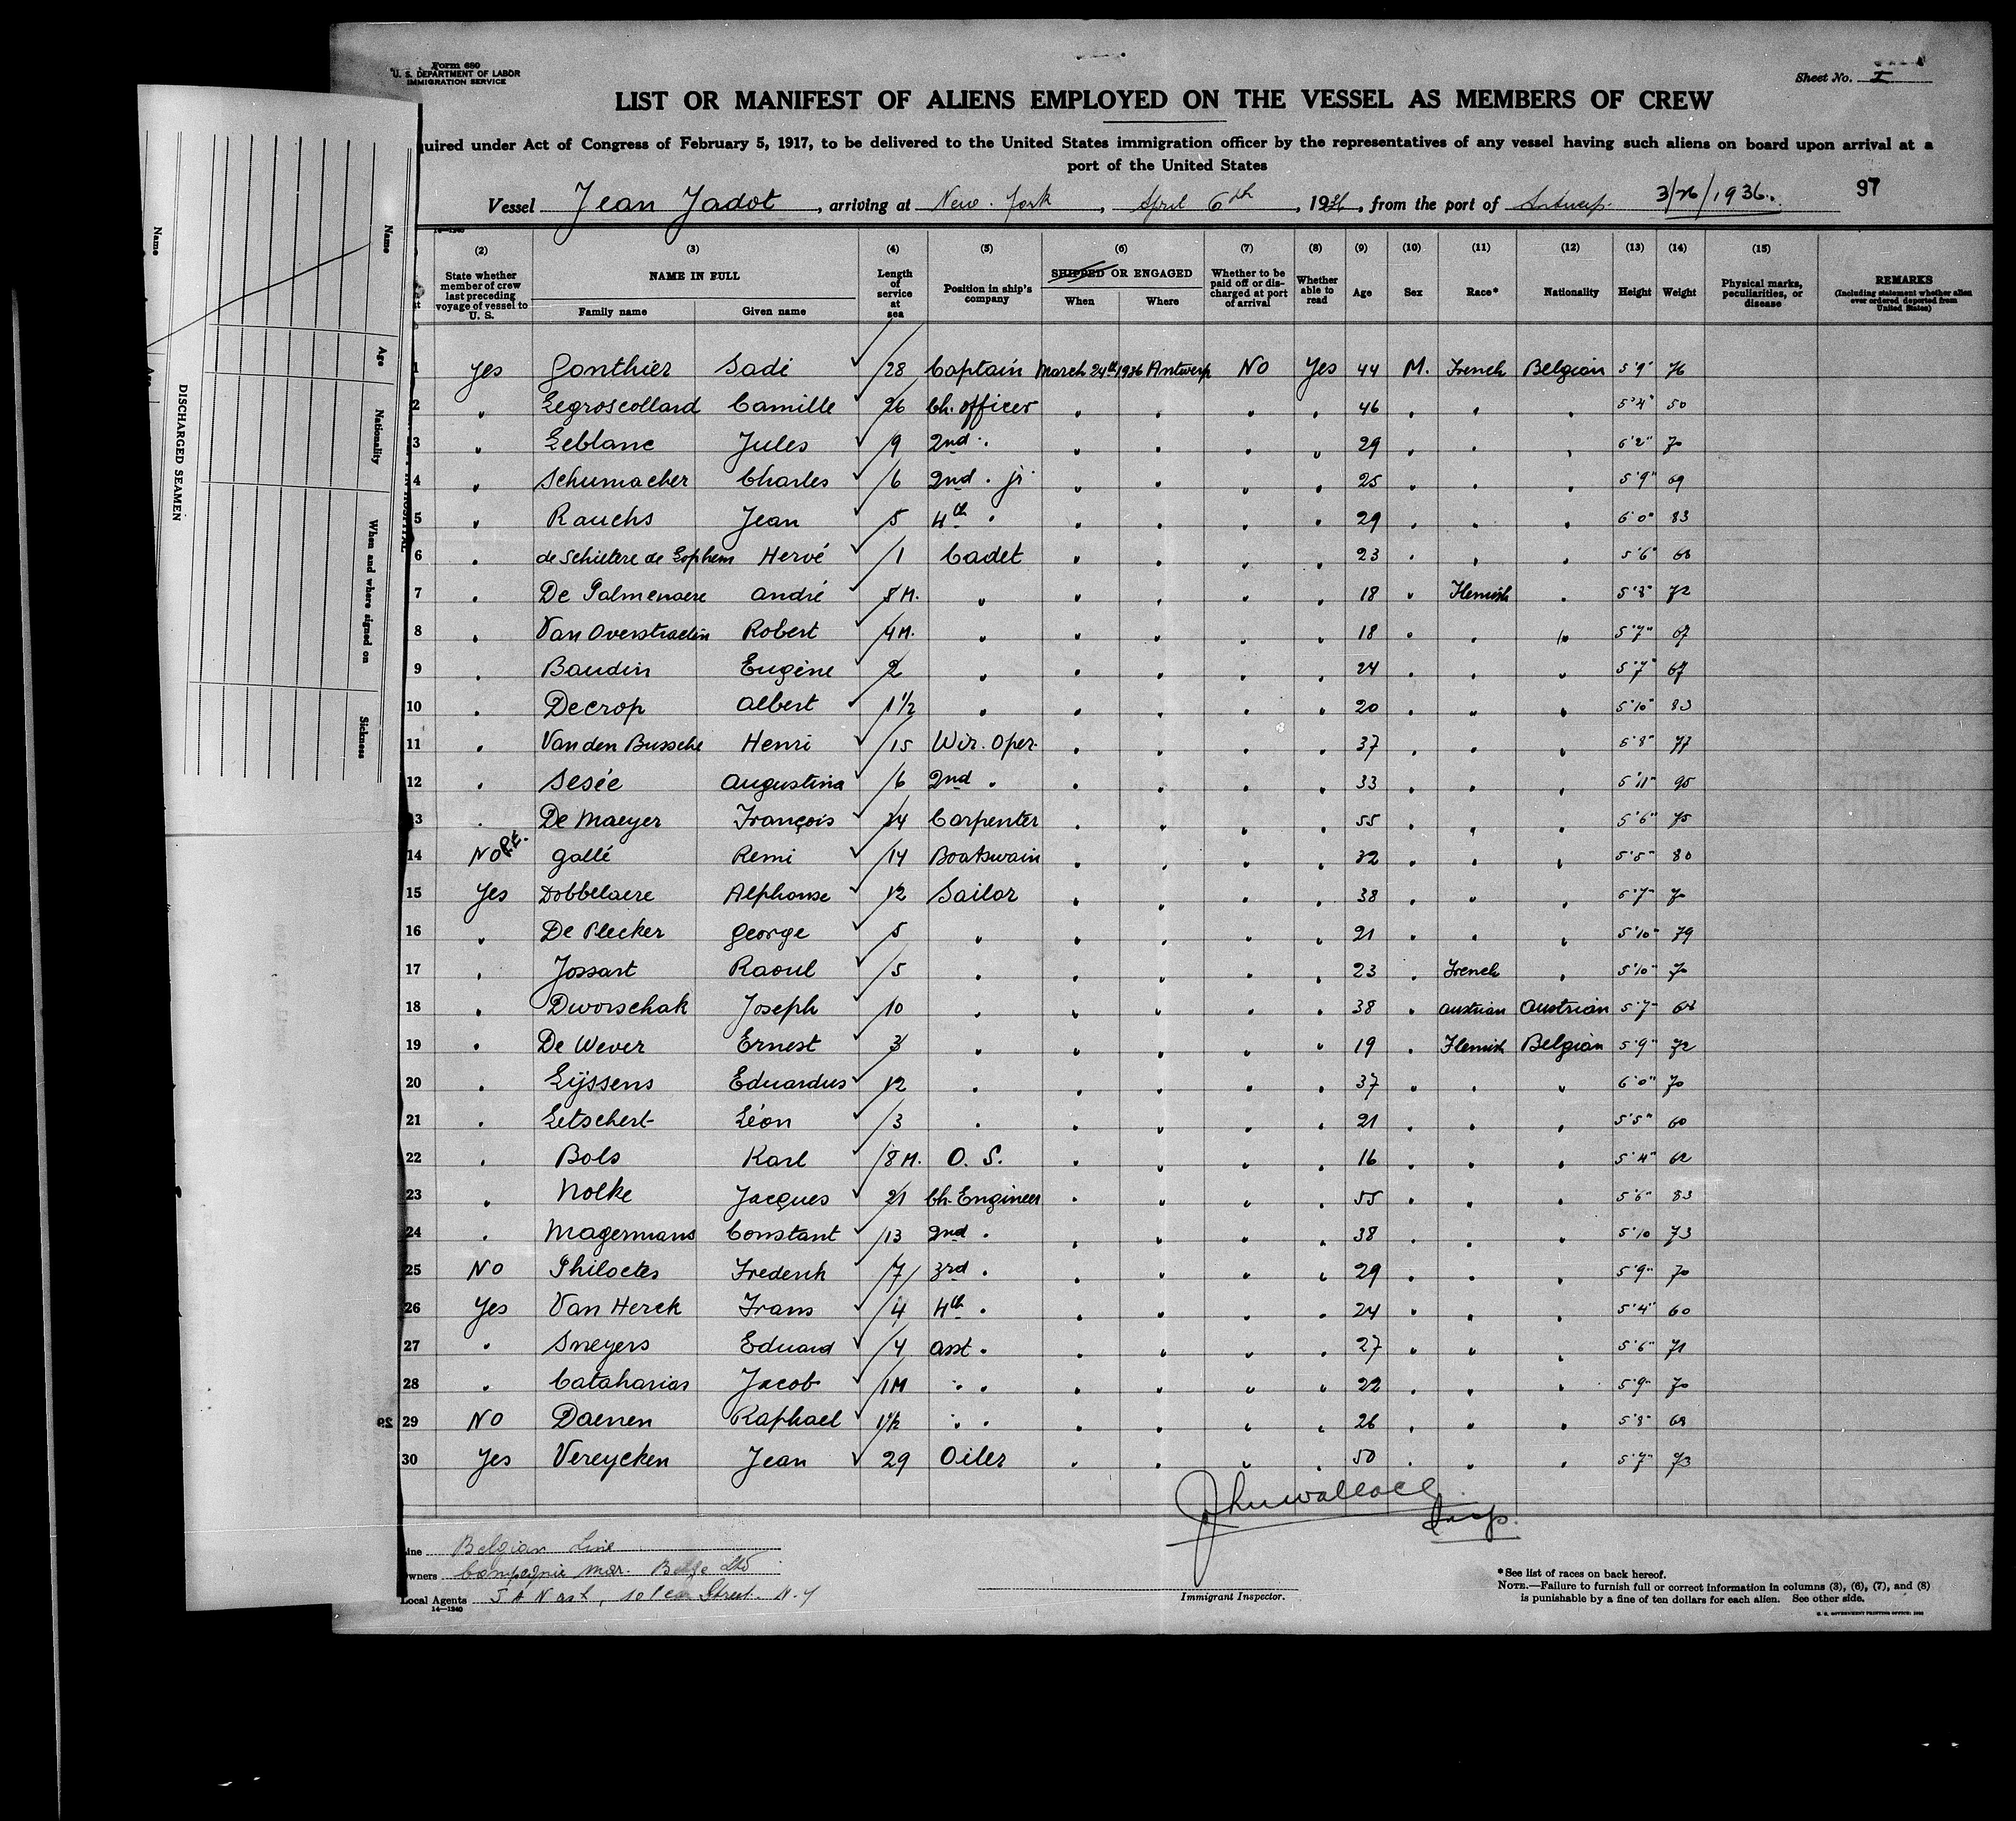 Form 680
U. S. DEPARTMENT OF LABOR
IMMIGRATION SERVICE
Sheet No. I
LIST OR MANIFEST OF ALIENS EMPLOYED ON THE VESSEL AS MEMBERS OF CREW
quired under Act of Congress of February 5, 1917, to be delivered to the United States immigration officer by the representatives of any vessel having such aliens on board upon arrival at a
port of the United States
Vessel Jean Jadot, arriving at New York, April 6th, 1936, from the port of Antwerp 3/26/1936. 97
14—1240
(2) (3) (4) (5) (6) (7) (8) (9) (10) (11) (12) (13) (14) (15)
State whether member of crew last preceding voyage of vessel to U. S. NAME IN FULL Family name Given name Length of service at sea Position in ship's company SHIPPED OR ENGAGED When Where Whether to be paid off or discharged at port of arrival Whether able to read Age Sex Race* Nationality Height Weight Physical marks, peculiarities, or disease REMARKS (Including statement whether alien ever ordered deported from United States)
1 Yes Gonthier Sadi 28 Captain March 24th 1936 Antwerp No Yes 44 M. French Belgian 5'9" 76
2 " Legroscollard Camille 26 Ch. officer " " " " 46 " " " 5'4" 50
3 " Leblanc Jules 9 2nd " " " " " 29 " " " 6'2" 70
4 " Schumacher Charles 6 2nd " jr " " " " 25 " " " 5'9" 69
5 " Rauchs Jean 5 4th " " " " " 29 " " " 6'0" 83
6 " de Schietere de Lophem Hervé 1 Cadet " " " " 23 " " " 5'6" 68
7 " De Palmenaere André 8 M. " " " " " 18 " Flemish " 5'8" 72
8 " Van Overstraetin Robert 4 M. " " " " " 18 " " " 5'7" 67
9 " Baudin Eugène 2 " " " " " 24 " " " 5'7" 67
10 " Decrop Albert 1 1/2 " " " " " 20 " " " 5'10" 83
11 " Van den Bussche Henri 15 Wir. Oper. " " " " 37 " " " 5'8" 77
12 " Sesée Augustina 6 2nd " " " " " 33 " " " 5'11" 95
13 " De Maeyer François 24 Carpenter " " " " 55 " " " 5'6" 75
14 No P.E. Gallé Remi 14 Boatswain " " " " 32 " " " 5'5" 80
15 Yes Dobbelaere Alphonse 12 Sailor " " " " 38 " " " 5'7" 70
16 " De Plecker George 5 " " " " " 21 " " " 5'10" 79
17 " Jossart Raoul 5 " " " " " 23 " French " 5'10" 70
18 " Dworschak Joseph 10 " " " " " 38 " Austrian Austrian 5'7" 68
19 " De Wever Ernest 3 " " " " " 19 " Flemish Belgian 5'9" 72
20 " Lijssens Eduardus 12 " " " " " 37 " " " 6'0" 70
21 " Letschert Léon 3 " " " " " 21 " " " 5'5" 60
22 " Bols Karl 8 M. O. S. " " " " 16 " " " 5'4" 62
23 " Nolke Jacques 21 Ch. Engineer " " " " 55 " " " 5'6" 83
24 " Magermans Constant 13 2nd " " " " " 38 " " " 5'10 73
25 No Philoctes Frederik 7 3rd " " " " " 29 " " " 5'9" 70
26 Yes Van Herck Frans 4 4th " " " " " 24 " " " 5'4" 60
27 " Sneyers Eduard 4 asst " " " " " 27 " " " 5'6" 71
28 " Cataharias Jacob 1 M " " " " " " 22 " " " 5'9" 70
29 No Daenen Raphael 1 1/2 " " " " " " 26 " " " 5'8" 68
30 Yes Vereycken Jean 29 Oiler " " " " 50 " " " 5'7" 73
John Wallace
Insp.
Line Belgian Line
Owners Compagnie Mar. Belge Ltd
Local Agents
14—1240
Immigrant Inspector.
*See list of races on back hereof.
NOTE.—Failure to furnish full or correct information in columns (3), (6), (7), and (8)
is punishable by a fine of ten dollars for each alien. See other side.
U. S. GOVERNMENT PRINTING OFFICE
DISCHARGED SEAMEN
Name Age Nationality When and where signed on Sickness
Name
HOSPITAL
29